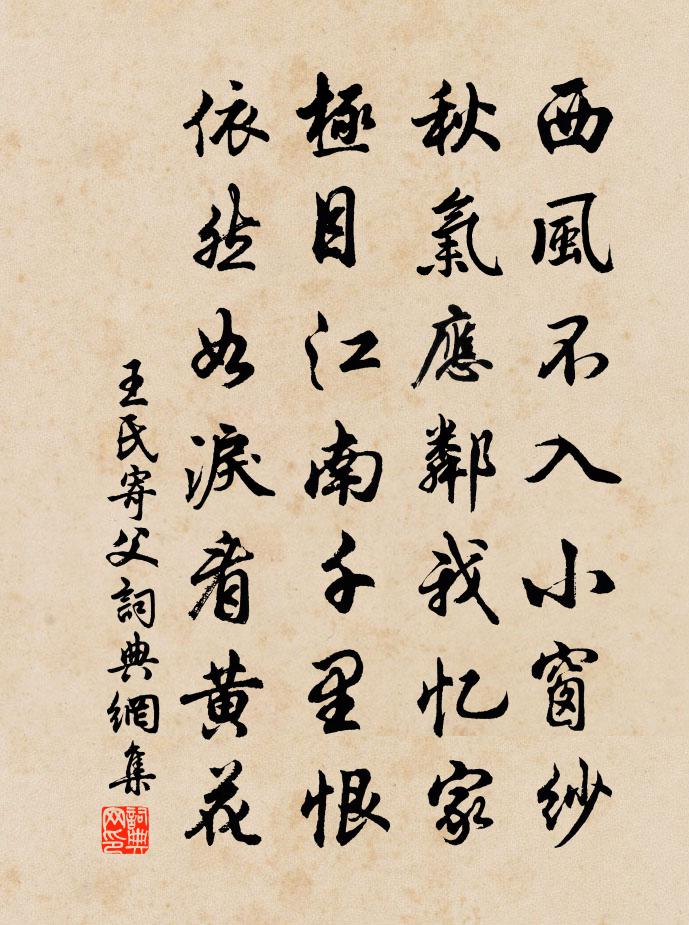 西風不入小窗紗
秋氣應鄰我忆家
極目江南千里恨
依然如淚看黃花
王氏寄父詞典網集
詞典网印